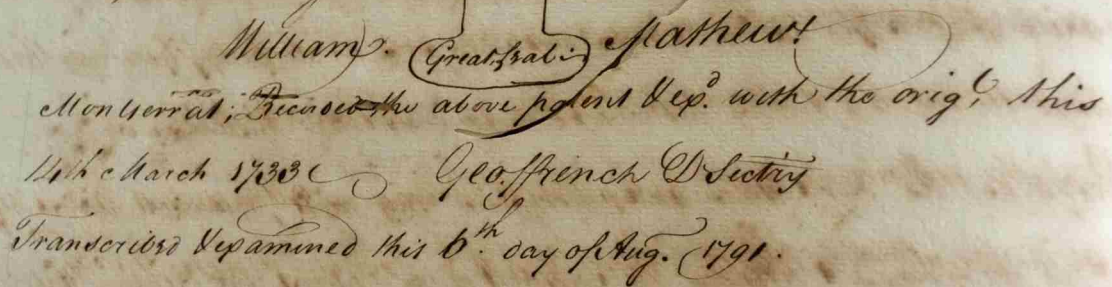 William. Great Seal Mathew.
Montserrat; Recorded the above patent & exd. with the origl. this
14th March 1733 Geo. ffrench D Sectry
Transcribed & examined this 6th. day of Aug. 1791.